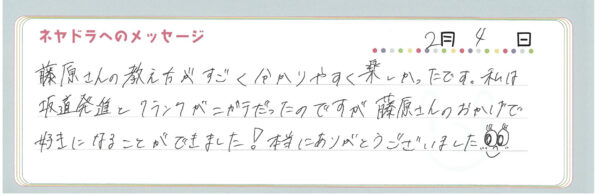 ネヤドラへのメッセージ
2月 4日
藤原さんの教え方がすごく分かりやすく楽しかったです。私は
坂道発進とクランクがニガテだったのですが藤原さんのおかげで
好きになることができました!本当にありがとうございました